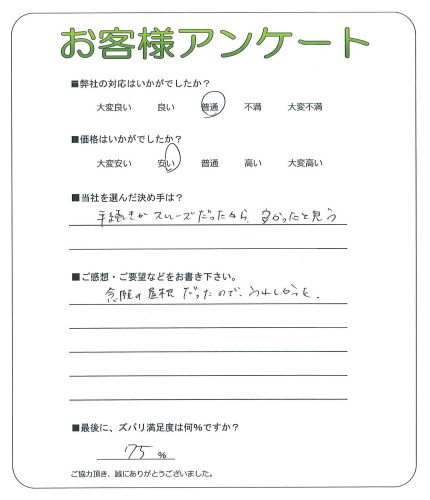 お客様アンケート
■弊社の対応はいかがでしたか？
大変良い 良い 普通 不満 大変不満
■価格はいかがでしたか？
大変安い 安い 普通 高い 大変高い
■当社を選んだ決め手は？
手続きがスムーズだったから、安かったと思う
■ご感想・ご要望などをお書き下さい。
念願の屋根だったので、うれしかった。
■最後に、ズバリ満足度は何％ですか？
75 ％
ご協力頂き、誠にありがとうございました。